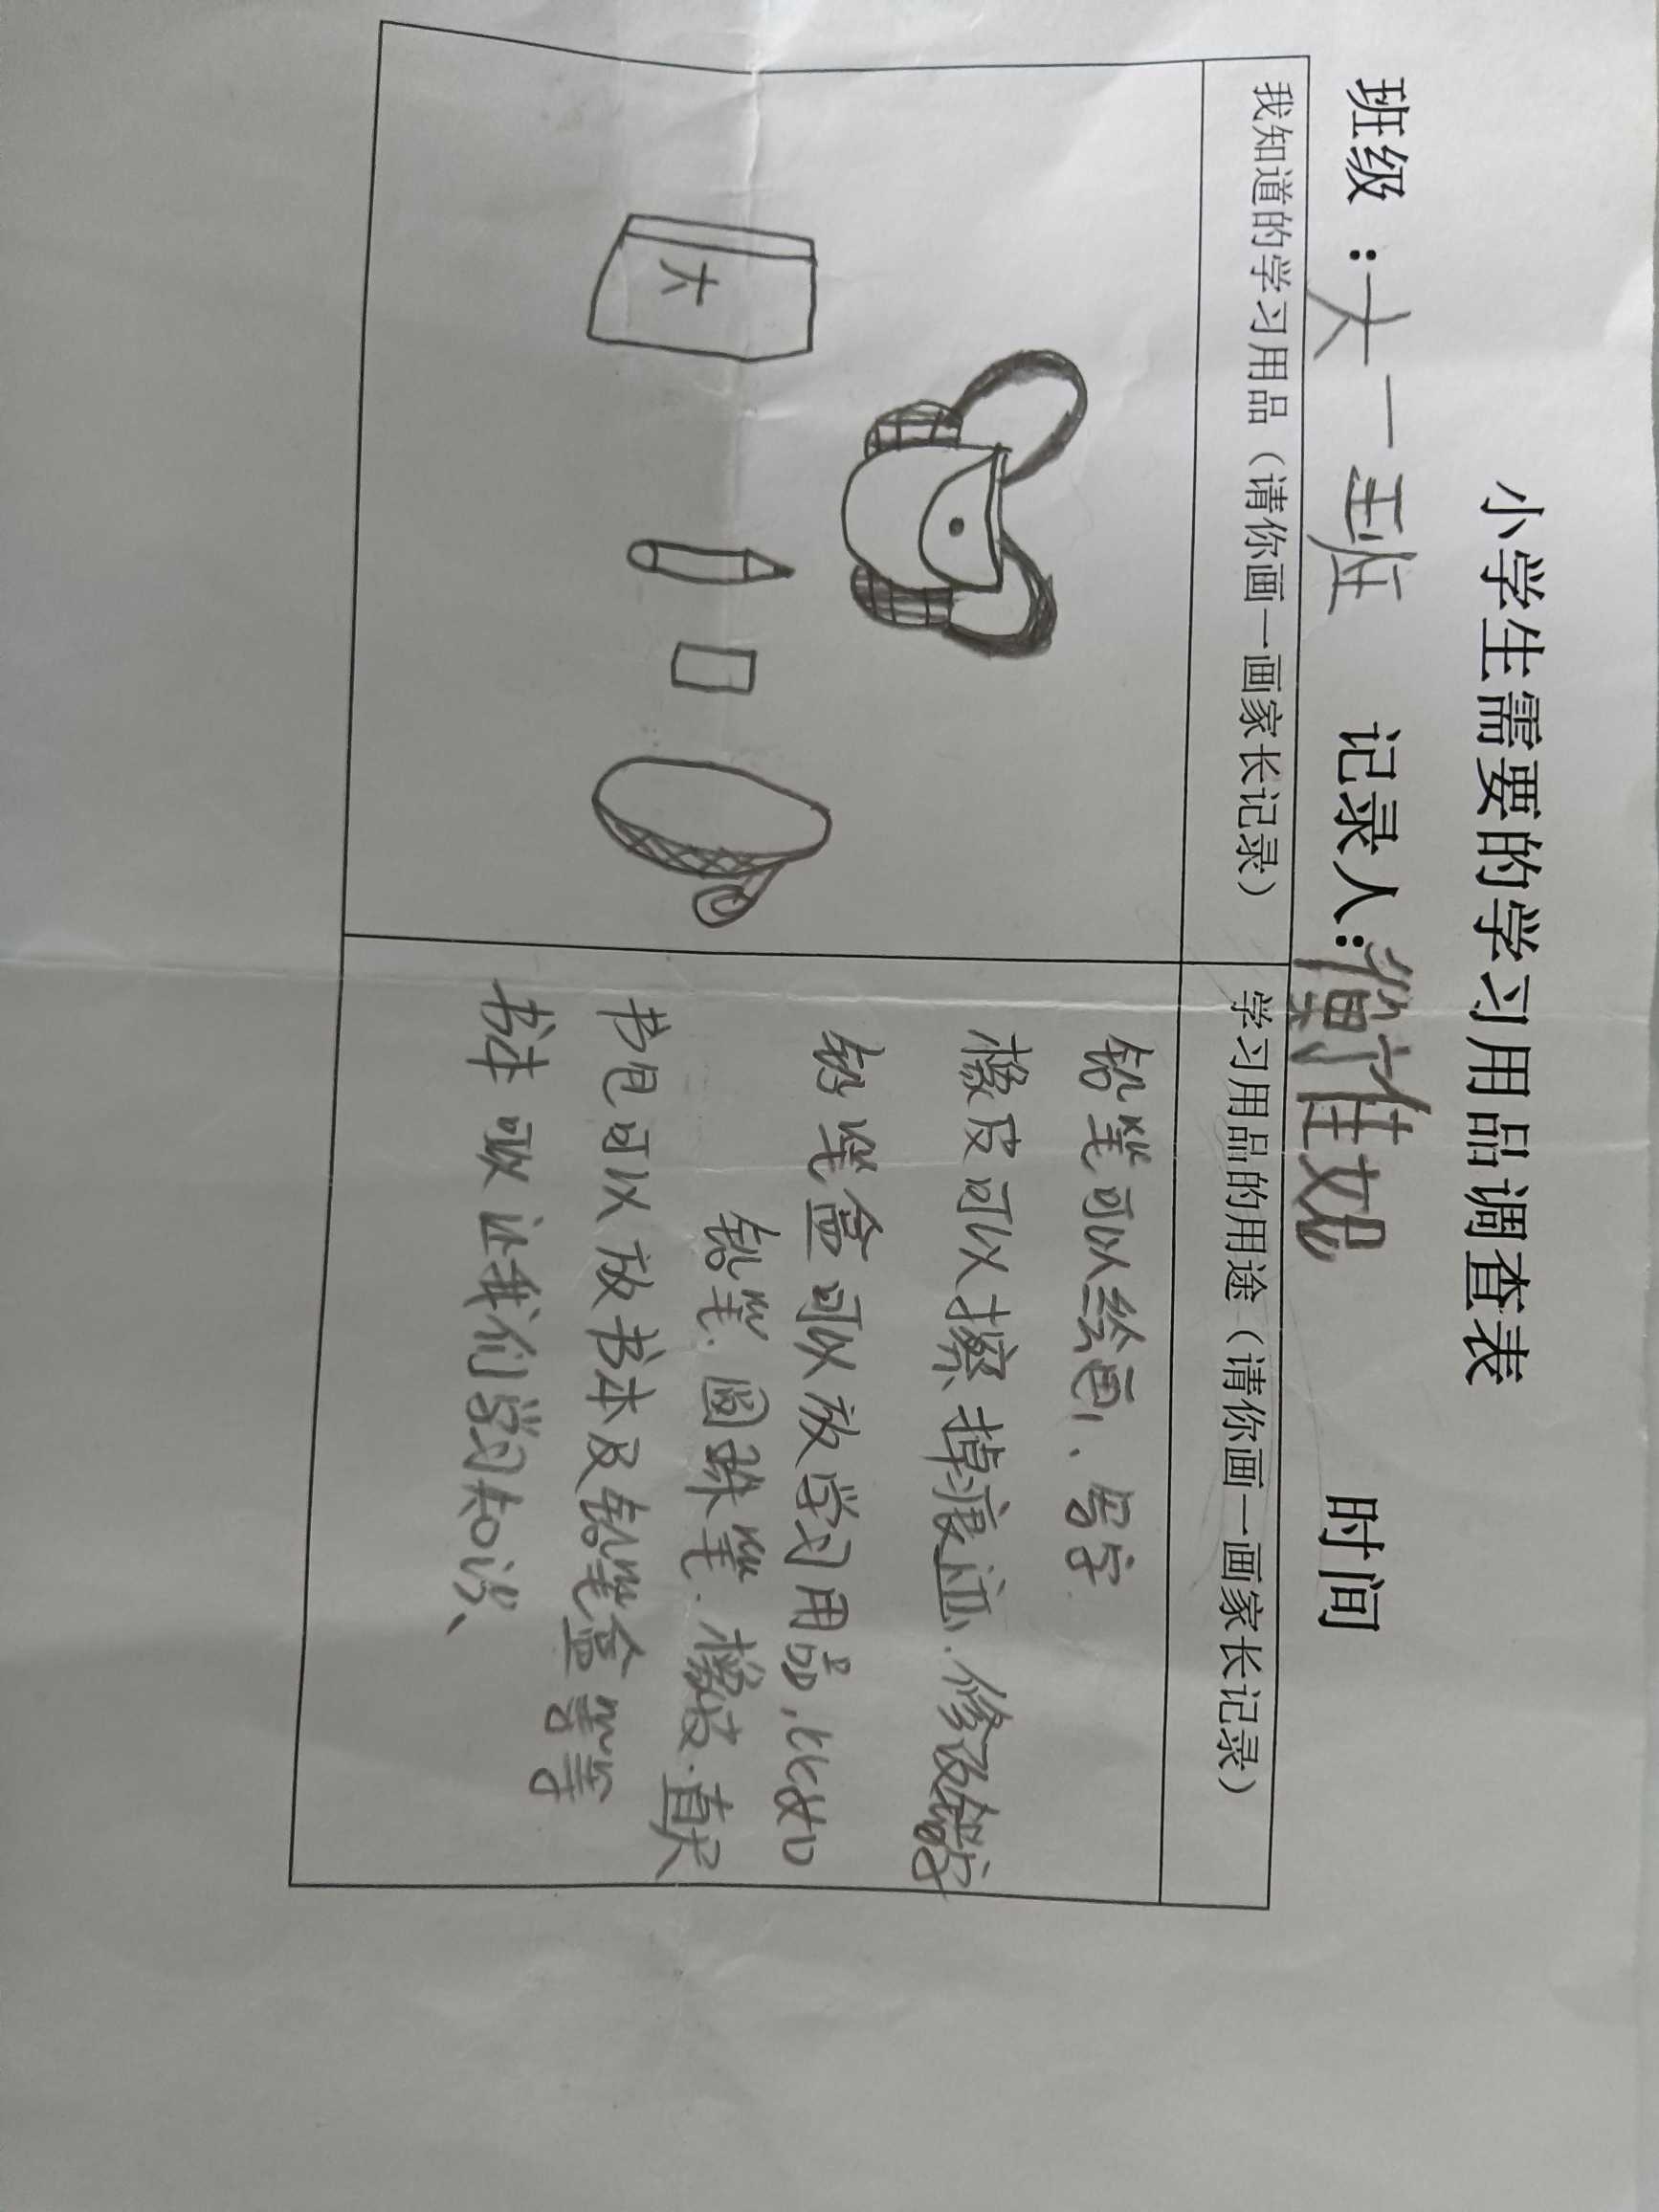 小学生需要的学习用品调查表
班级：大一班 记录人： 时间
我知道的学习用品（请你画一画家长记录）
学习用品的用途（请你画一画家长记录）
大
铅笔可以绘画、写字
橡皮可以擦掉痕迹.修改错字
铅笔盒可以放学习用品,比如
铅笔.圆珠笔.橡皮.直尺
书包可以放书本及铅笔盒等等
书本可以让我们学习知识、